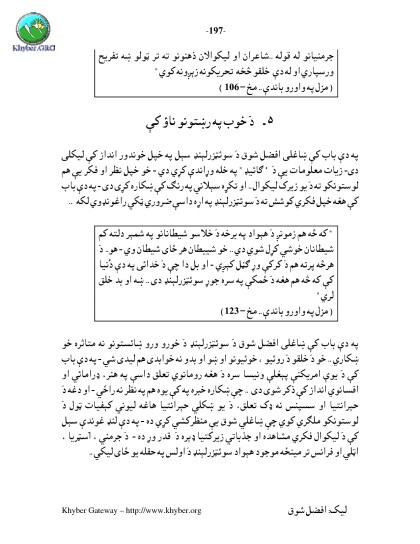 -197-
Khyber.ORG
جرمنیانو له قوله ..شاعران او لیکوالان ذهنونو ته تر ټولو ښه تفریح
ورسپاری او له دې خلقو څخه تحریکونه زېږونه کوي "
( مزل په واورو باندې .. مخ – 106 )
۵۔ دَ خوب په رښتونو ناؤ کې
په دې باب کې ښاغلی افضل شوق دَ سوئټزرلېنډ سېل په خپل خوندور انداز کې لیکلی
دی- زیات معلومات یې دَ " ګائیډ" په خله وړاندې کړي دي - خو خپل نظر او فکر یې هم
لوستونکو ته دَ یو زیرک لیکوال .. او تکړه سېلاني په رنګ کې ښکاره کړی دی - په دې باب
کې هغه خپل فکري کوشش ته دَ سوئټزرلېنډ په اړه داسې ضروري ټکي راغونډوي لکه ..
"که څه هم زمونږ دَ هېواد په برخه دَ خلاسو شیطانانو په شمېر دلته کم
شیطانان خوشي کړل شوي دي.. خو شیطان هر ځای شیطان وي - هو.. دَ
هرڅه پرته هم دَ کرکې وړ ګڼل کېږي - او بل دا چې دَ خدائی په دې دُنیا
کې که څه هم هغه دَ ځمکې په سره جوړ سوئټزرلېنډ دی .. ښه او بد خلق
لري "
( مزل په واورو باندې .. مخ – 123 )
په دې باب کې ښاغلی افضل شوق دَ سوئټزرلېنډ دَ خورو ورو ښائستونو نه متاثره خو
ښکاري .. خو دَ خلقو دَ روئیو ، خوئیونو او ښو او بدو نه خوابدی هم لیدی شي - په دې باب
کې دَ یوې امریکنې پېغلې ونیسا سره دَ هغه رومانوي تعلق داسې په هنر، ډراماني او
افسانوي انداز کې ذکر شوی دی .. چې ښکاره خبره په کې یوه هم په نظر نه راځي - او دغه دَ
حیرانتیا او سسپنس نه ډک تعلق، دَ یو ښکلي حیرانتیا هاغه لیوني کېفیات ټول دَ
لوستونکو ملګري کوي چې ښاغلي شوق یې منظرکشي کړې ده - په دې لنډ غوندې سېل
کې دَ لیکوال فکري مشاهده او جذباتي زیرکتیا ډېره دَ قدر وړ ده - دَ جرمني ، اسټریا ،
اټلي او فرانس تر مینځه موجود هېواد سوئټزرلېنډ دَ اولس په حقله یو ځای لیکي ..
لیک: افضل شوق
Khyber Gateway – http://www.khyber.org